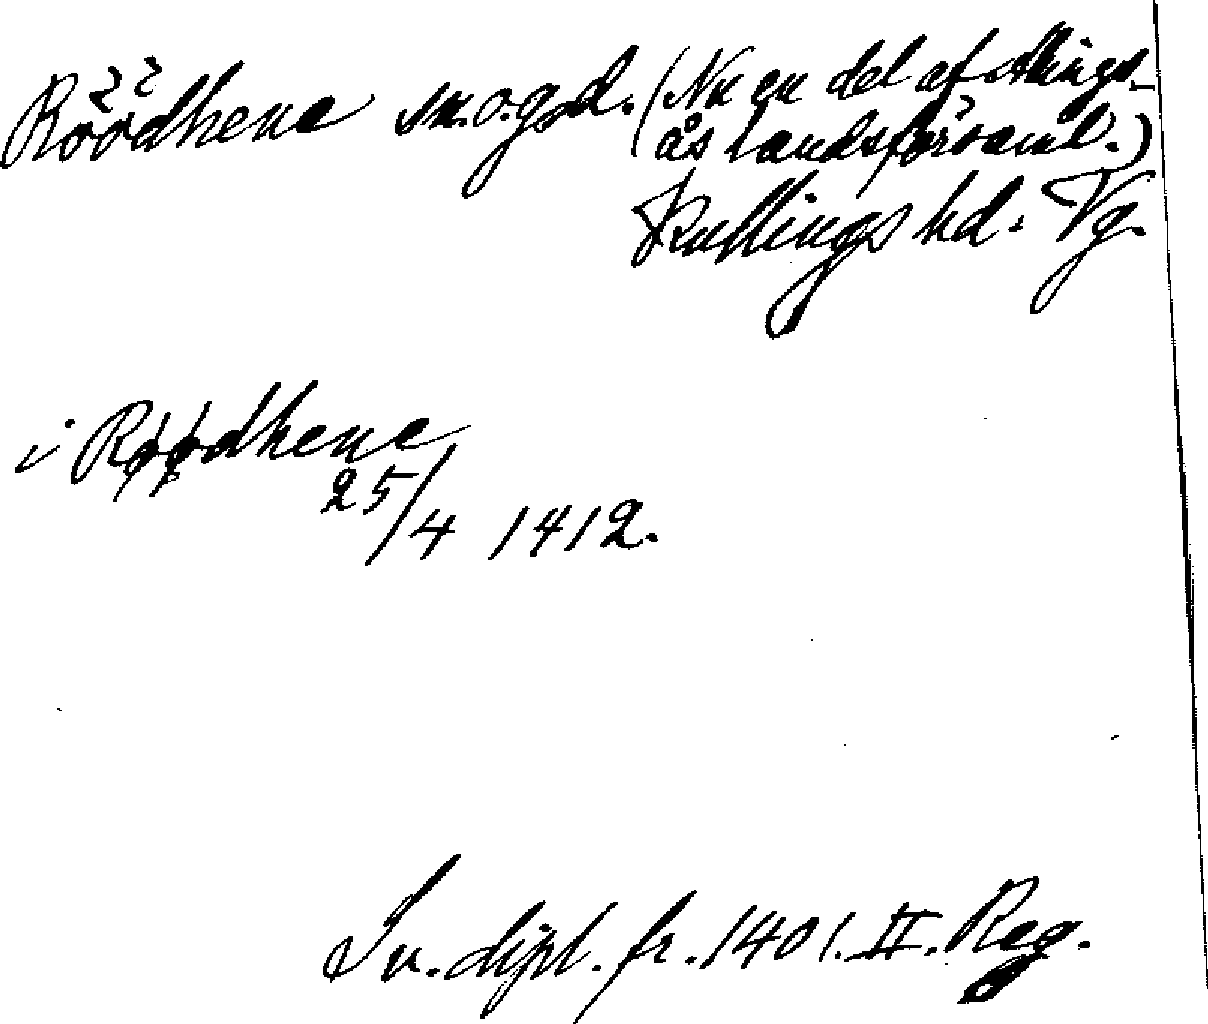 Röödhene sn.o.gd. (Nu en del af Alings-
ås landsförsaml.)
Kullings hd. Vg.
i Røødhene
25/4 1412.
Sv. dipl. fr. 1401. II. Reg.